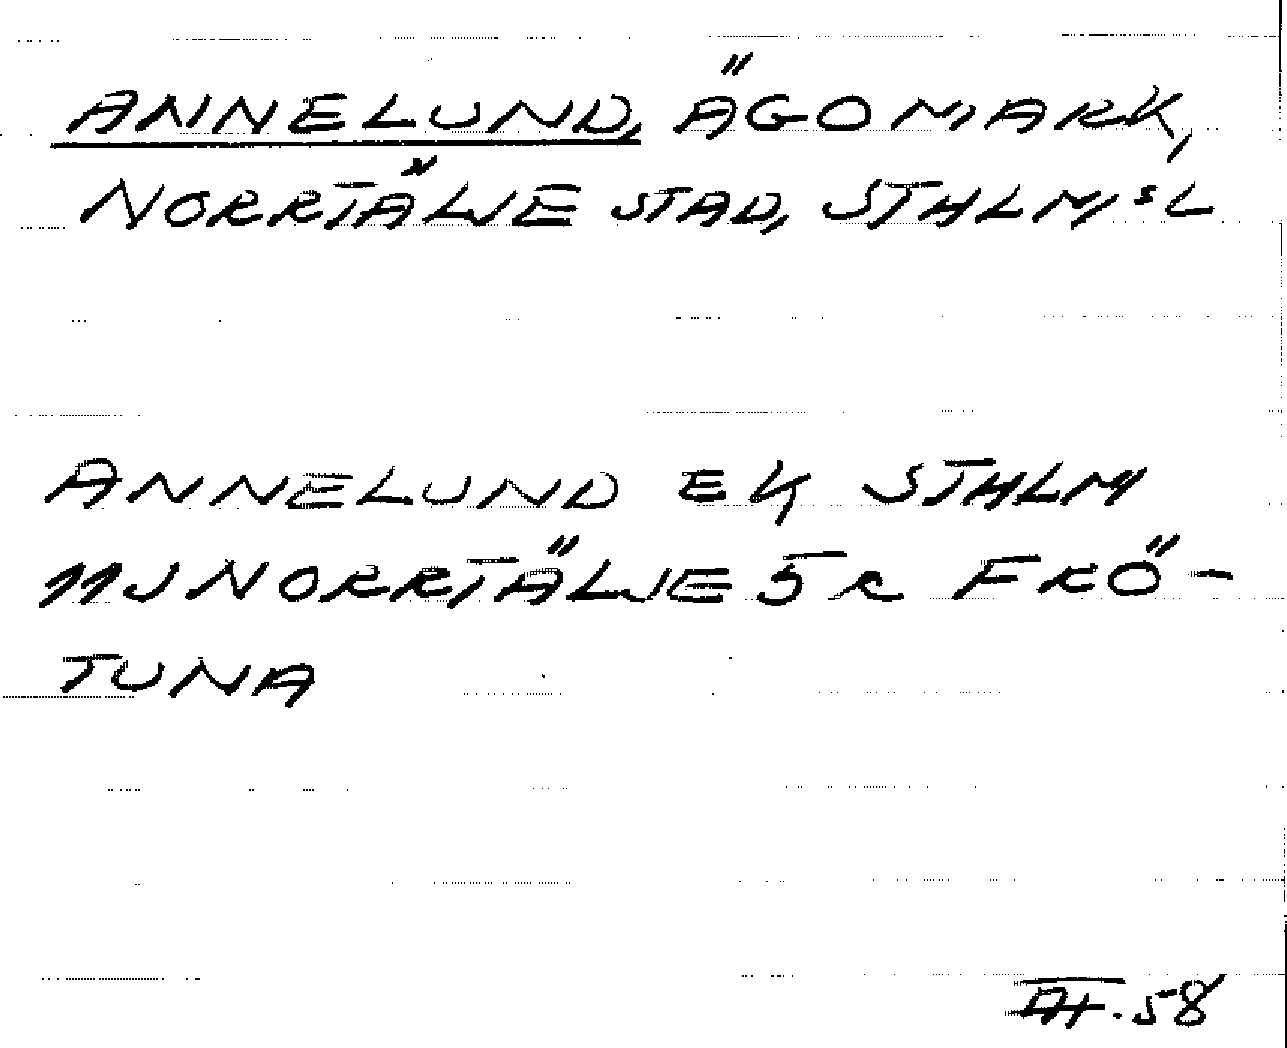 ANNELUND, ÄGOMARK,
NORRTÄLJE STAD, STHLMS L
ANNELUND EK STHLM
11J NORRTÄLJE 5 R FRÖ-
TUNA
58